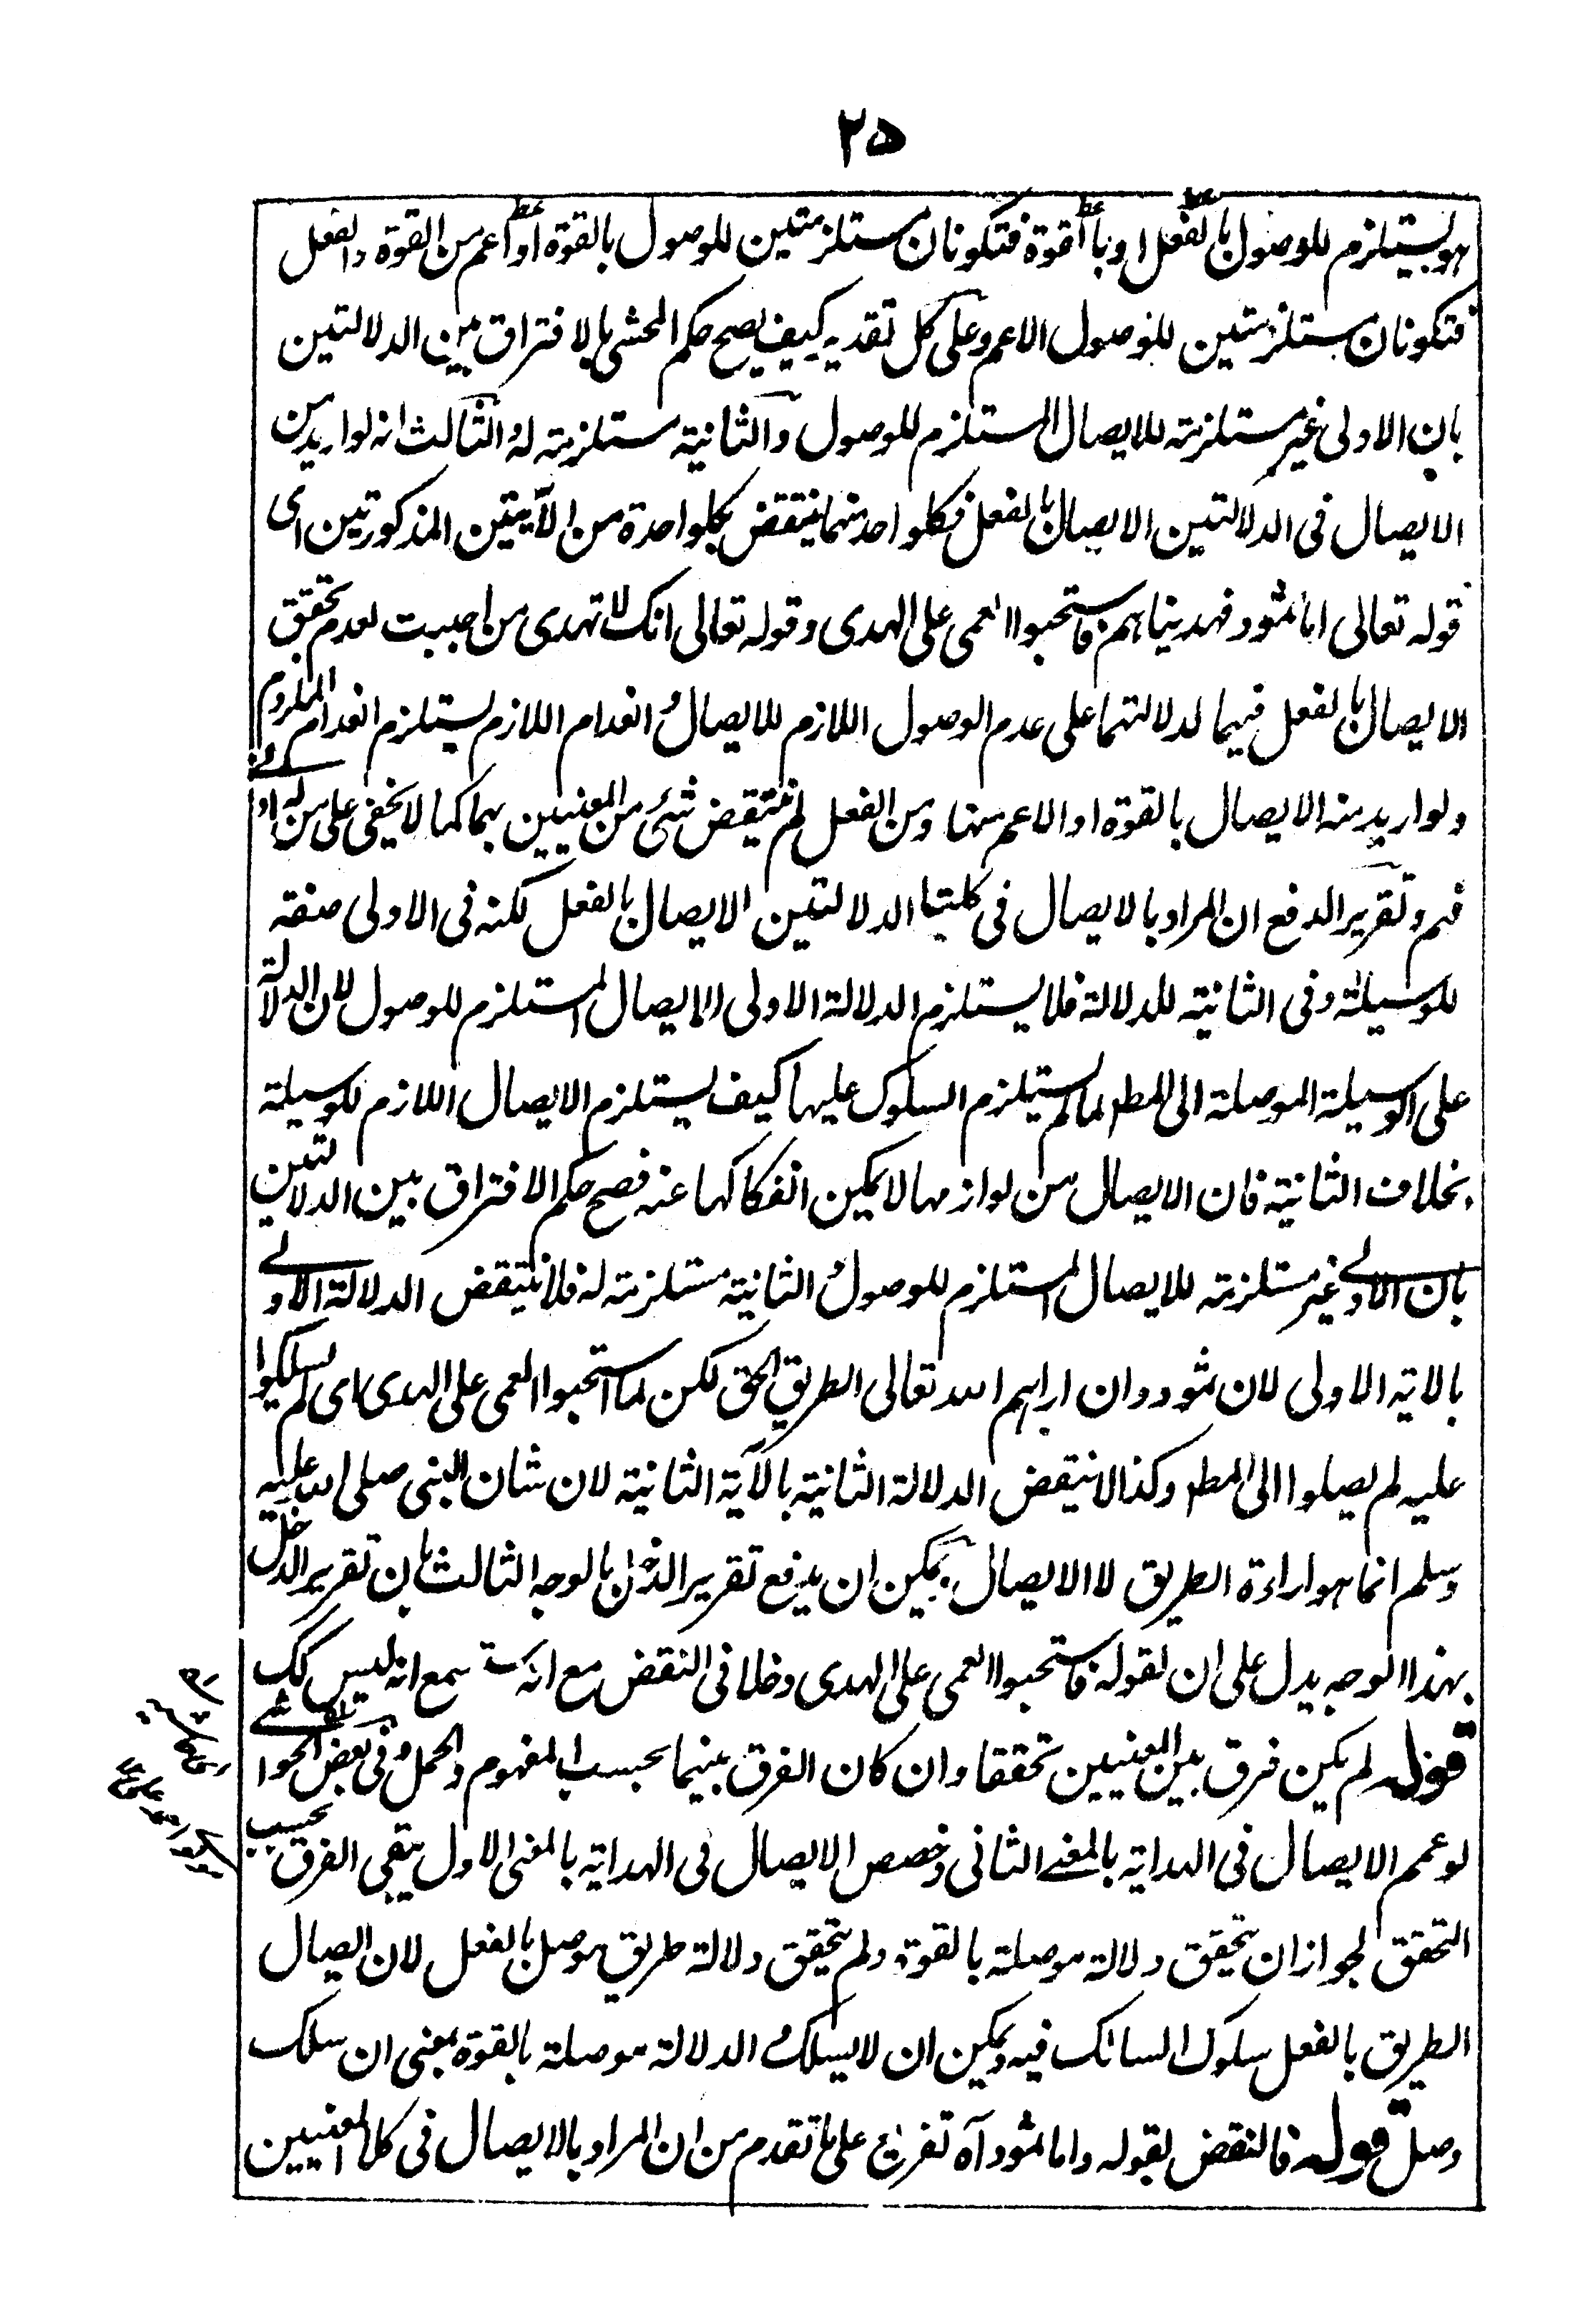 ٢٥
هو يستلزم للوصول بالفعل او بالقوة فتكونان مستلزمتين للوصول بالقوة او اعم من القوة والفعل
فتكونان مستلزمتين للوصول الاعم وعلى كل تقدير كيف يصح حكم المحشى بالافتراق بين الدلالتين
بان الاولى غير مستلزمته للايصال المستلزم للوصول والثانية مستلزمته له الثالث انه لو اريد من
الايصال فى الدلالتين الايصال بالفعل فكلواحد منهما ينتقض بكلواحدة من الآيتين المذكورتين اى
قوله تعالى اما ثمود فهديناهم فاستحبوا العمى على الهدى وقوله تعالى انك لا تهدى من احببت لعدم تحقق
الايصال بالفعل فيهما لدلالتهما على عدم الوصول اللازم للايصال و انعدام اللازم يستلزم انعدام الملزوم
ولو اريد منه الايصال بالقوة او الاعم منها ومن الفعل لم ينتقض شئ من المعنيين بهما كما لا يخفى على من له ادنى
فهم وتقرير الدفع ان المراد بالايصال فى كلتيا الدلالتين الايصال بالفعل لكنه فى الاولى صفته
للوسيلة وفى الثانية للدلالة فلا يستلزم الدلالة الاولى الايصال المستلزم للوصول لان الدلالة
على الوسيلة الموصلة الى المطم لما لم يستلزم السلوك عليها كيف يستلزم الايصال اللازم للوسيلة
بخلاف الثانية فان الايصال من لوازمها لا يمكن انفكاكها عنه فصح حكم الافتراق بين الدلالتين
بان الاولى غير مستلزمته للايصال المستلزم للوصول و الثانية مستلزمته له فلا ينتقض الدلالة الاولى
بالاية الاولى لان ثمود وان اراهم الله تعالى الطريق الحق لكن لما استحبوا العمى على الهدى اى لم يسلكوا
عليه لم يصلوا الى المطم وكذا لا ينتقض الدلالة الثانية بالآية الثانية لان شان النبى صلى الله عليه
وسلم انما هو اراءة الطريق لا الايصال و يمكن ان يدفع تقرير الدخل بالوجه الثالث بان تقرير الدخل
بهذا الوجه يدل على ان لقوله فاستحبوا العمى على الهدى دخلا فى النقض مع انه ليس كك
قوله لم يكن فرق بين المعنيين تحققا وان كان الفرق بينهما بحسب المفهوم والحمل وفى بعض الحواشى
لو عمم الايصال فى الهداية بالمعنے الثانى وخصص الايصال فى الهداية بالمعنى الاول يبقى الفرق بحسب
التحقق لجواز ان يتحقق دلالة موصلة بالقوة ولم يتحقق دلالة طريق موصل بالفعل لان ايصال
الطريق بالفعل سلوك السالك فيه ويمكن ان لا يسلك و الدلالة موصلة بالقوة بمعنى ان سلك
وصل قوله فالنقض بقوله واما ثمود آه تفريع على ما تقدم من ان المراد بالايصال فى كلا المعنيين